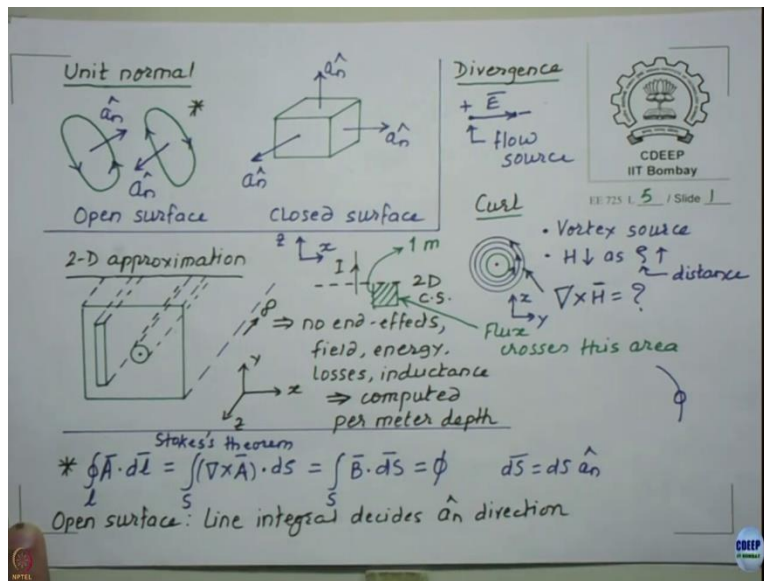 Unit normal
ân
*
ân
Open surface
ân
ân
ân
Closed surface
Divergence
+ E̅
flow source
CDEEP
IIT Bombay
EE 725 L 5 / Slide 1
Curl
• Vortex source
• H ↓ as ρ ↑
distance
∇×H̅ = ?
x
y
2-D approximation
z
x
I
1 m
2D
C.S.
Flux
crosses this area
∞
⇒ no end-effects,
field, energy.
losses, inductance
⇒ computed
per meter depth
y
x
z
Stokes's theorem
* ∮l A̅·dl̅ = ∫S (∇×A̅)·ds = ∫S B̅·dS̅ = ϕ
dS̅ = ds ân
ϕ
Open surface: Line integral decides ân direction
NPTEL
CDEEP
IIT BOMBAY